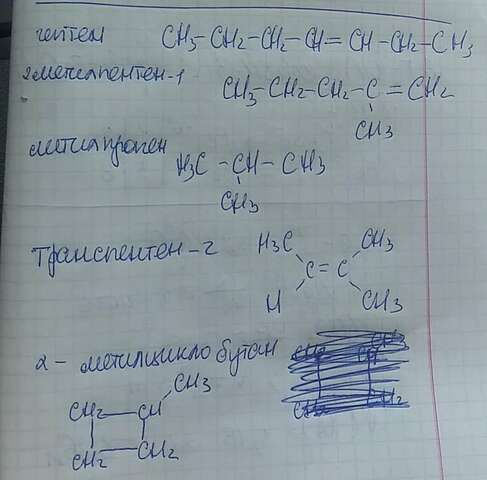 гептен CH₃-CH₂-CH₂-CH=CH-CH₂-CH₃
2метилпентен-1 CH₃-CH₂-CH₂-C=CH₂
CH₃
метилпропен H₃C-CH-CH₃
CH₃
транспентен-2 H₃C CH₃
C=C
H CH₃
2-метилциклобутан
CH₃
CH₂-CH
CH₂-CH₂